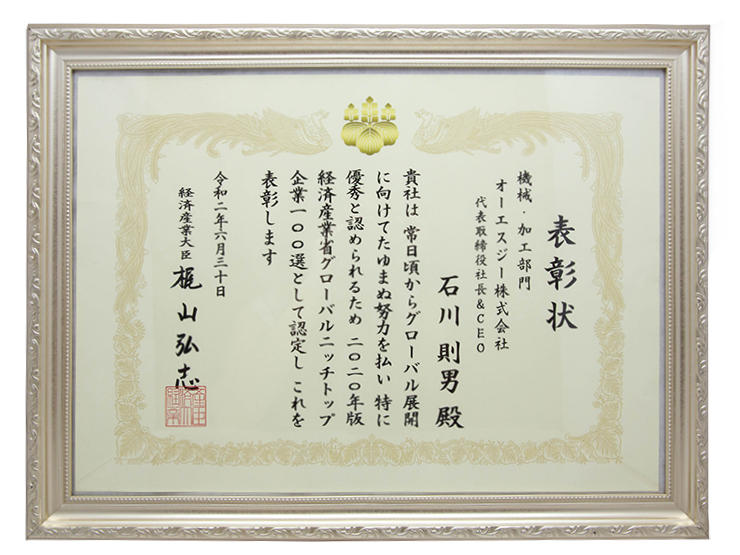 表彰状
機械・加工部門
オーエスジー株式会社
代表取締役社長&CEO
石川 則男 殿
貴社は 常日頃からグローバル展開
に向けてたゆまぬ努力を払い 特に
優秀と認められるため 二〇二〇年版
経済産業省グローバルニッチトップ
企業一〇〇選として認定し これを
表彰します
令和二年六月三十日
経済産業大臣 梶山弘志